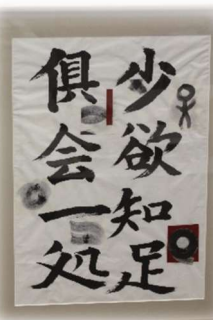 少欲知足
俱会一処